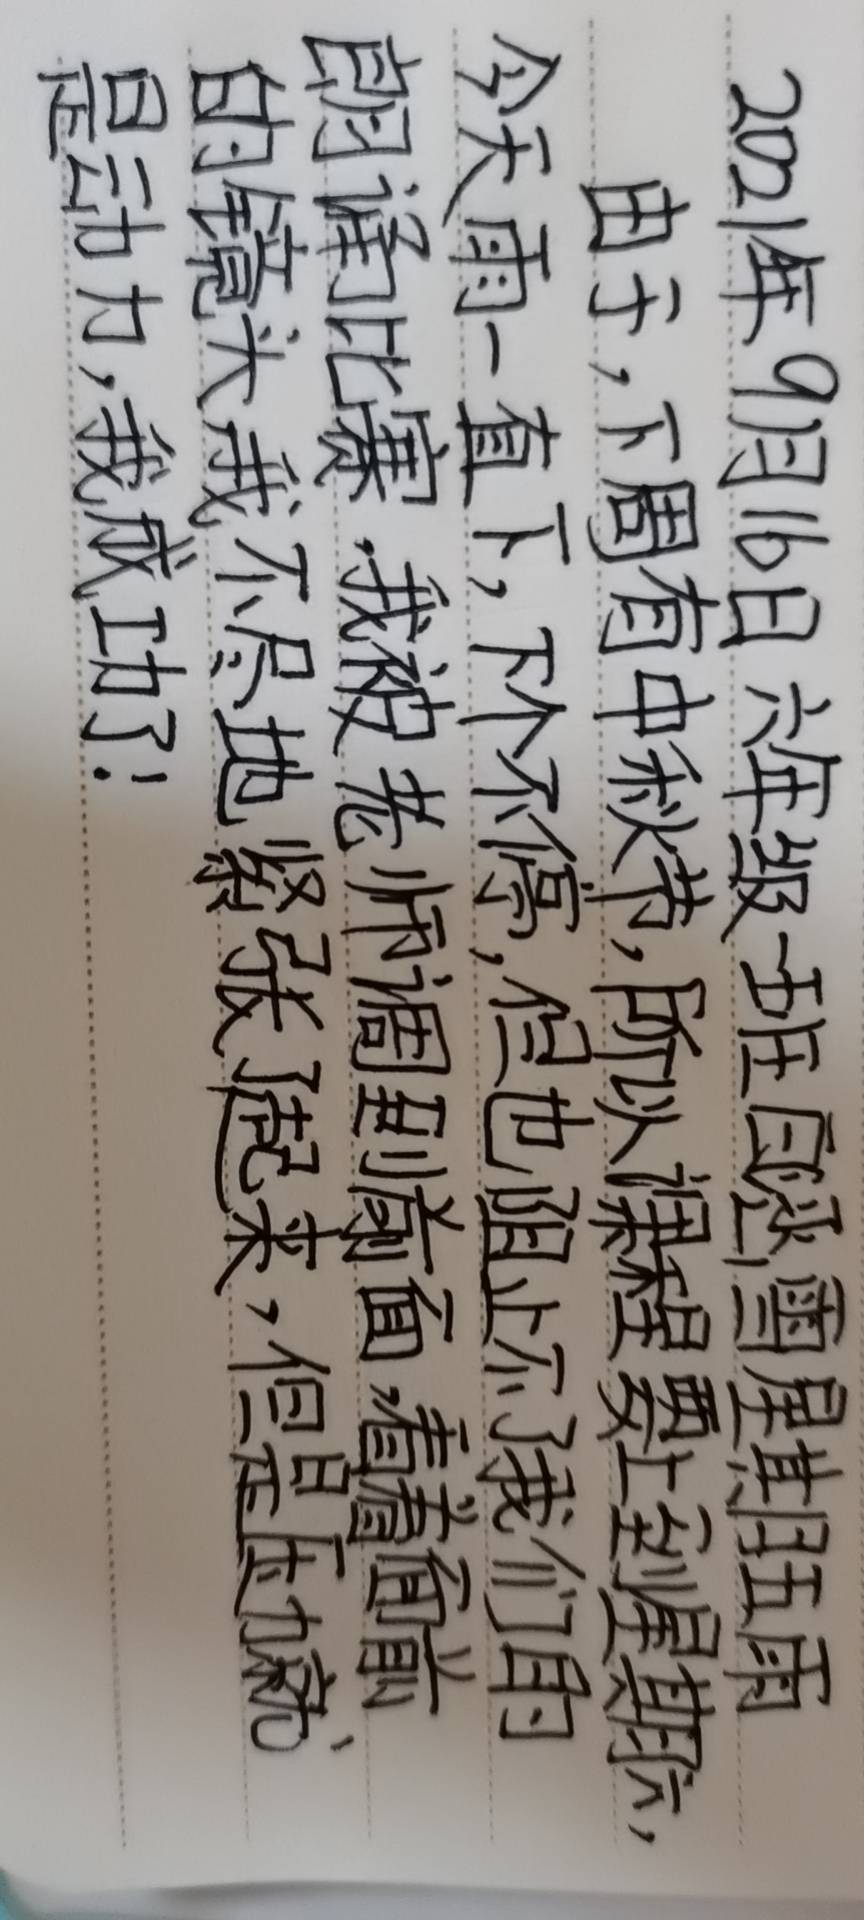 2021年9月16日 六年级一班 星期五 雨
由于,下周有中秋节,所以课程要上到星期六,
今天雨一直下,下个不停,但也阻止不了我们的
朗诵比赛,我被老师调到前面,看着面前
的镜头我不尽地紧张了起来,但是压力就
是动力,我成功了!